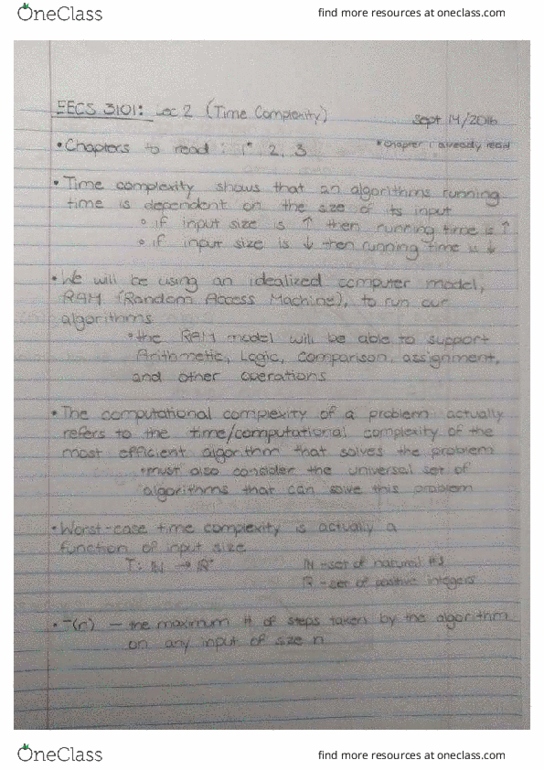 OneClass
find more resources at oneclass.com
EECS 3101: Lec 2 (Time Complexity)
Sept 14/2016
• Chapters to read : 1*, 2, 3
*chapter 1 already read
• Time complexity shows that an algorithms running
time is dependent on the size of its input
∘ if input size is ↑ then running time is ↑
∘ if input size is ↓ then running time is ↓
• We will be using an idealized computer model,
RAM (Random Access Machine), to run our
algorithms
• the RAM model will be able to support
Arithmetic, Logic, comparison, assignment,
and other operations
• The computational complexity of a problem actually
refers to the time/computational complexity of the
most efficient algorithm that solves the problem
• must also consider the universal set of
algorithms that can solve this problem
• Worst-case time complexity is actually a
function of input size
T: N → R⁺
N - set of natural #s
R - set of positive integers
• T(n) — the maximum # of steps taken by the algorithm
on any input of size n
OneClass
find more resources at oneclass.com